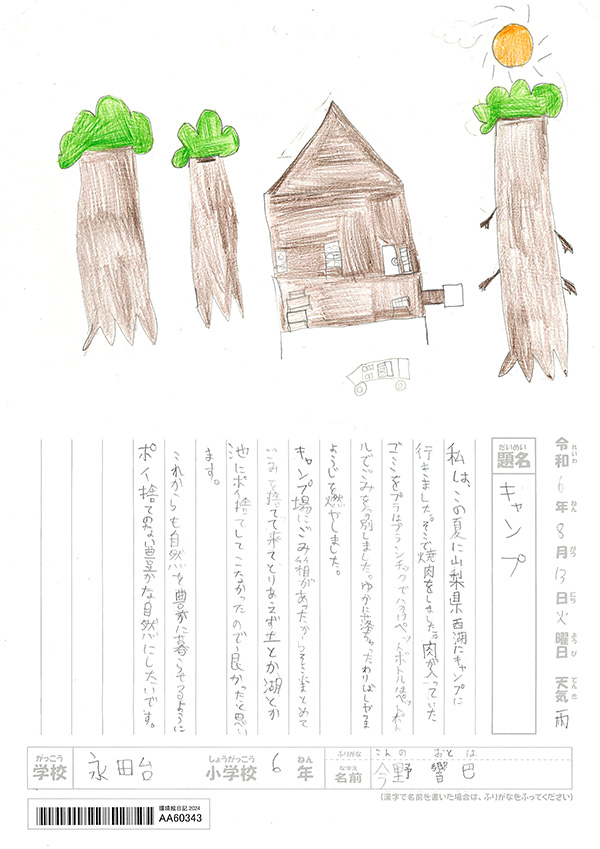 令和6年8月13日火曜日 天気雨
れいわ ねん がつ にち ようび てんき
だいめい
題名 キャンプ
私は、この夏に山梨県西湖にキャンプに
行きました。そこで焼肉をしました。肉が入っていた
ゴミをプラはプランチックでパックペットボトルはペットボト
ルでごみを分別しました。ゆかに落ちちゃったわりばしやつま
ようじを燃やしました。
キャンプ場にごみ箱があったからそこにまとめて
ごみを捨てて来てとりあえず土とか湖とか
池にポイ捨てしてこなかったので良かったと思い
ます。
これからも自然を豊かに暮らせるように
ポイ捨てのない豊かな自然にしたいです。
がっこう しょうがっこう ねん
学校 永田台 小学校 6年
ふりがな こんの おとは
なまえ
名前 今野 響巴
(漢字で名前を書いた場合は、ふりがなをふってください)
環境絵日記 2024
AA60343